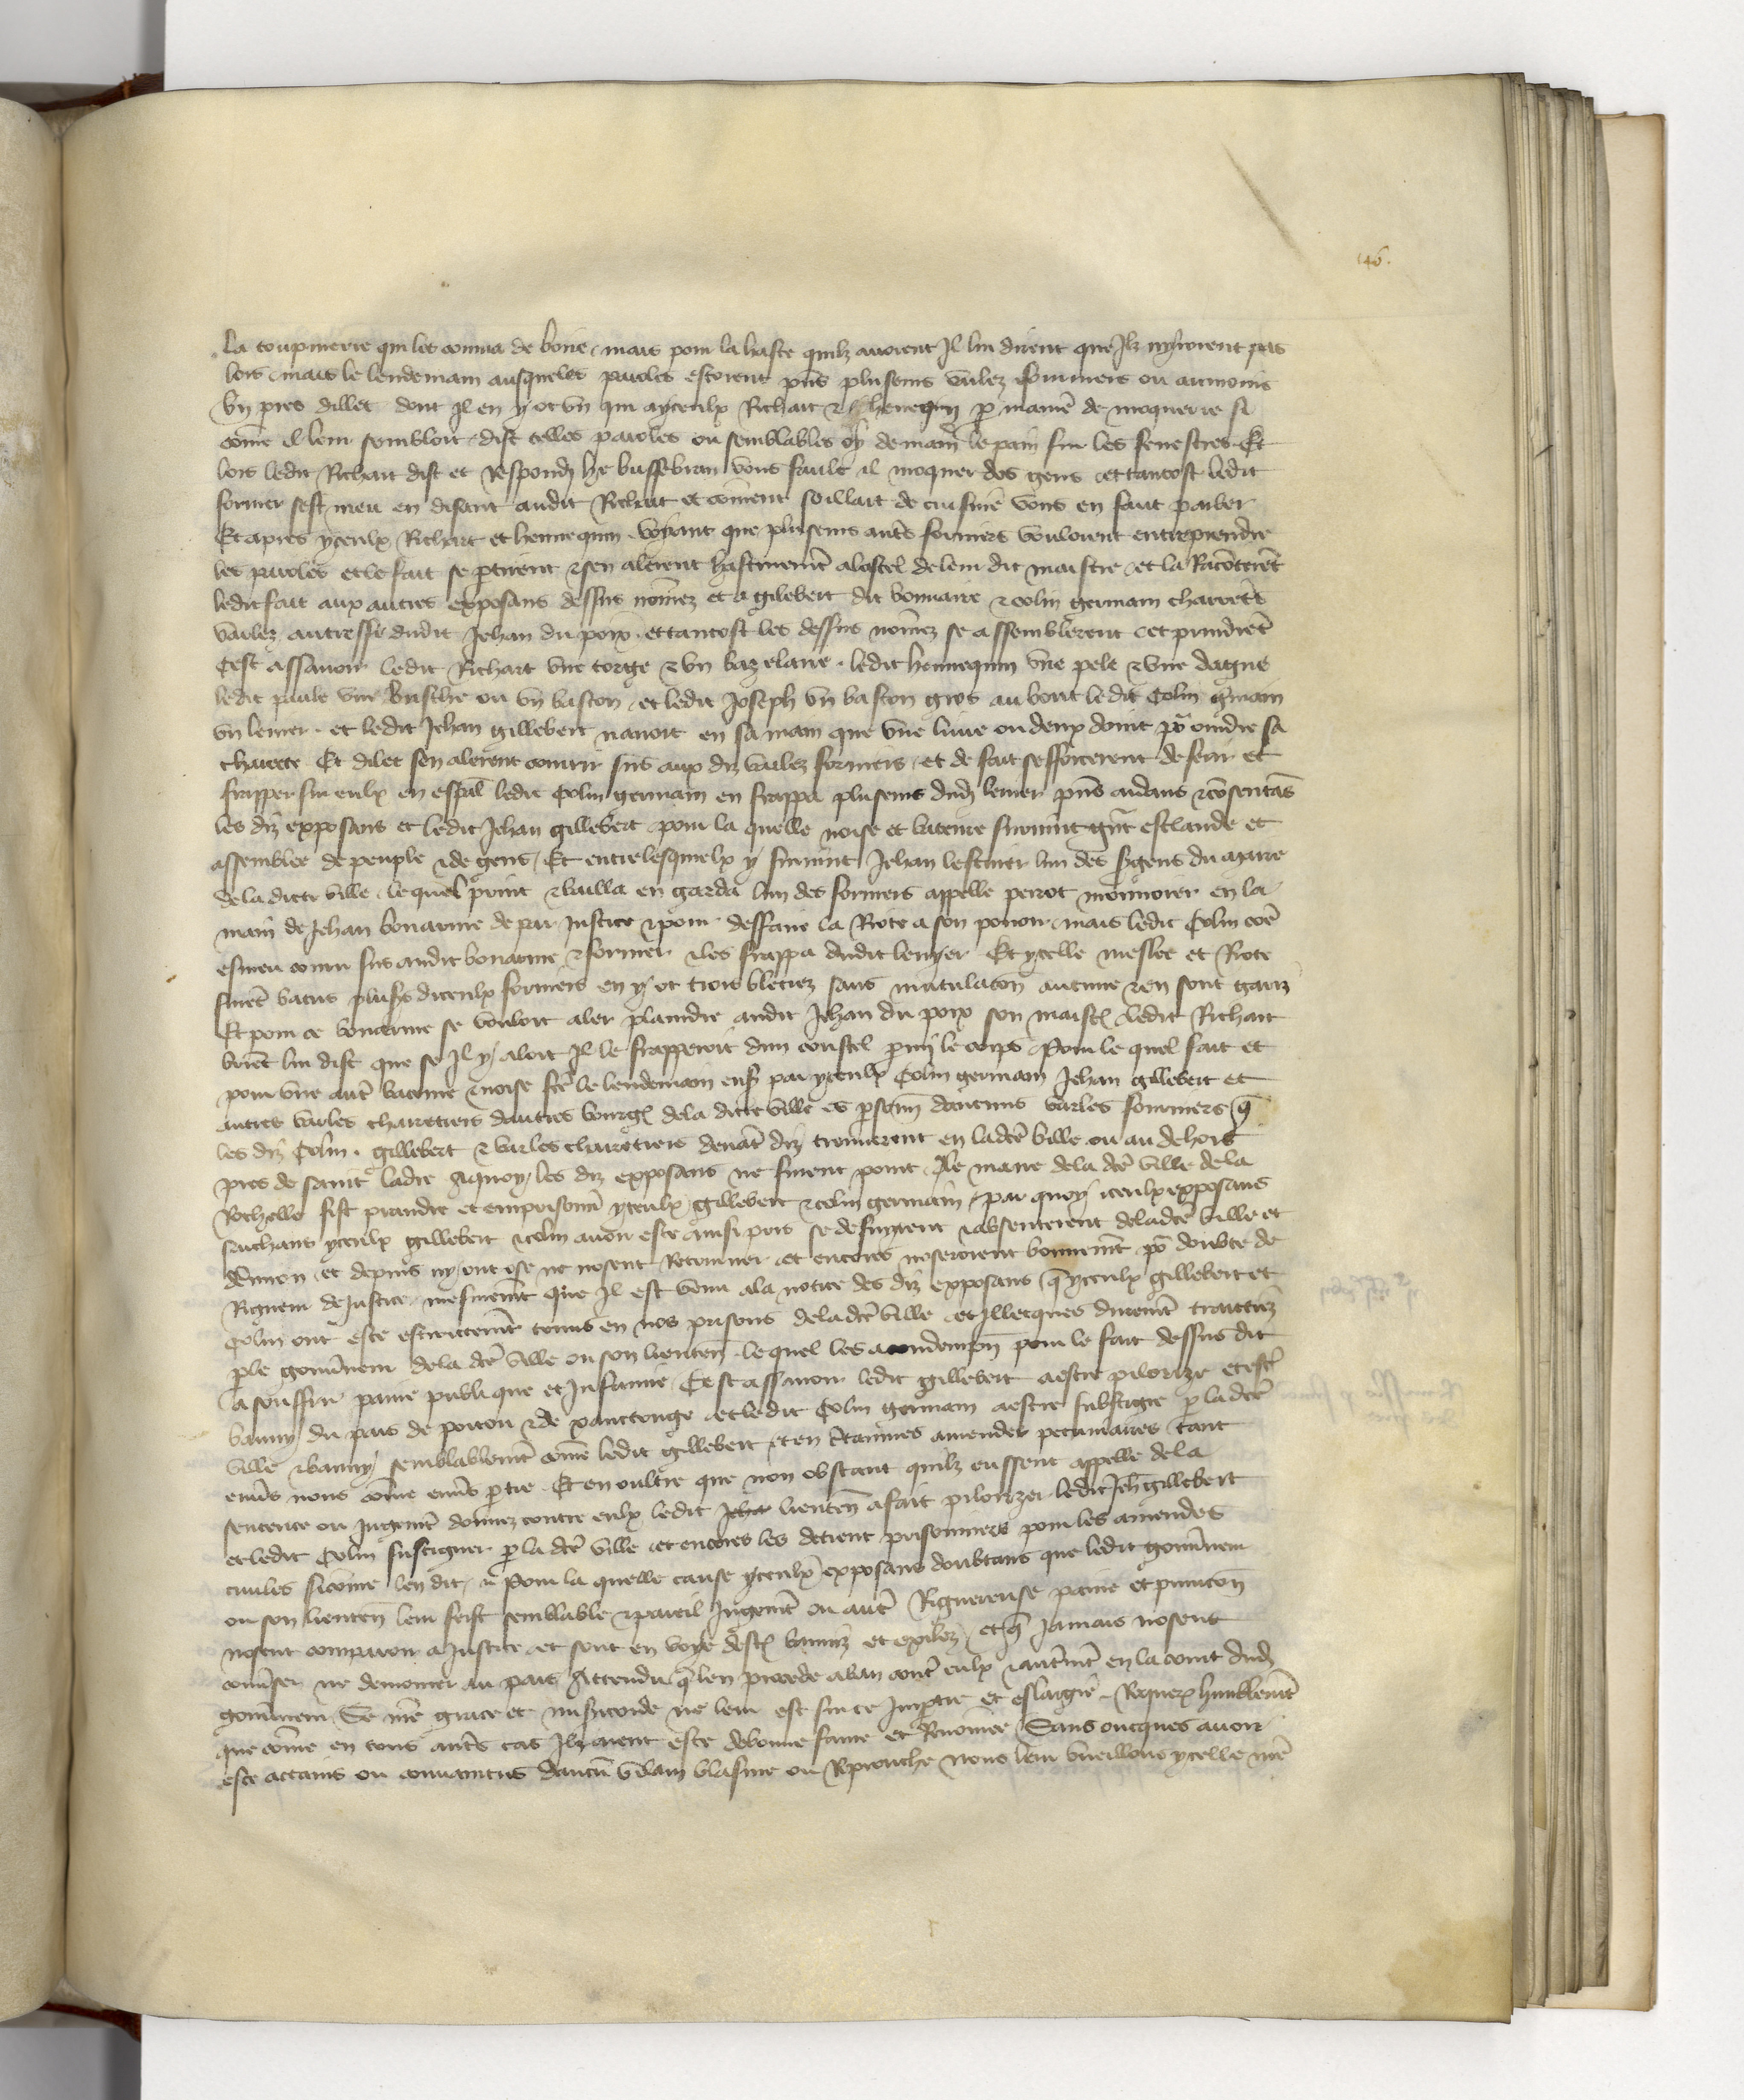 46.
La toupinerie qui les convia de boire, mais pour la haste quilz avoient Il lui dirent que Ilz nyroient pas
lors, mais le lendemain ausqueles paroles estoient pns pluseurs varlez forniers ou aumoins
un pres dillec dont Il en y ot un qui a yceulx Richart & Henequin p maniē de moquerie si
cōme il leur sembloit, dist telles paroles ou semblables le pain sur les fenestres. Et
lors ledit Richart dist et respondi he buffebran vous fault il moquer des gens et tantost ledit
fornier sest meu en disant audit Richart et cōment soillart de cuisine vous en faut parler
Et apres yceulx Richart et hennequin voyant que pluseurs autˢ forniers vouloient entreprendre
les paroles et le fait se ptirent & sen alerent hastivemēt a lostel de leur dit maistre et la Racōterēt
ledit fait aux autres exposans dessus nōmez et a gilebert dit bonnaire & colin germain charretˢ
varlez autressi dudit Jehan du poix. et tantost les dessus nōmez se assemblerent et prindrēt
Cest assavoir ledit Richart une torge & un bazelaire. ledit hennequin une pele & une dague
ledit paule une busche ou un baston, et ledit Joseph un baston gros au bout ledit Colin gmain
un levier. et ledit Jehan gillebert navoit en sa main que une livre ou deux doint po oindre sa
charrete Et dilec sen alerent courir sus aux diz varlez forniers, et de fait sefforcerent de ferir et
frapper sur eulx en espāl ledit Colin germain en frappa pluseurs dudit levier pns aidans & cōsentās
les diz exposans et ledit Jehan gillebert pour la quelle noise et bateure survint gnt esclande et
assemblee de peuple & de gens, Et entre lesquelx y survint Jehan lescuier lun des sgens du maire
de la dicte ville, lequel print & bailla en garde lun des forniers appelle perrot monnoier en la
main de Jehan bonarme de par Justice & pour deffaire la Riote a son povoir, mais ledit Colin cōe
esmeu couru sus audit bonarme & fornier & les frappa dudit levyer Et ycelle meslee et Riote
furēt batus plusˢ diceulx forniers en y ot trois bleciez sans mutulacōn aucune & en sont gariz
Et pour ce bonarme se vouloit aler plaindre audit Jehan du poix son maistˢ ledit Richart
lui dist que se Il y aloit Il le frapperoit dun coustel pmi le corps Pour le quel fait et
pour une autˢ bateure & noise fcē le lendemain ensˢ par yceulx Colin germain Jehan gillebert et
autres varles charretiers dautres bourgˢ de la dicte ville es psōnes daucuns varles forniers q̄
les diz Colin. gillebert & varles charretiers devāt diz trouverent en ladcē ville ou au dehors
pres de saint ladre Aquoy les diz exposans ne furent point. Le maire de la dcē ville de la
Rochelle fist prandre et emprisonn yceulx gillebert & colin germain, par quoy iceulx exposans
sachans yceulx gillebert & colin avoir este ainsi pris se defuyrent & absenterent de ladcē ville et
et depuis ny ont ose ne nosent Retourner et encores noseroient bonnemēt po doubte de
Rigueur de Justice, mesmemēt que Il est venu ala notice des diz exposans q̄ yceulx gillebert et
Colin ont este estroictemēt tenus en nos prisons de ladcē ville et Illecques duremēt traictiez
p le gouvneur de la dcē ville ou son lieutenˢ le quel les a condempn pour le fait dessus dit
a souffrir paine publique et Infamie, Cest assavoir ledit gillebert a estre pilorize et estˢ
banny du pais de poitou & de xanctonge et ledit Colin germain a estre fustigie p ladcē
ville & banny semblablemēt cōme ledit gillebert et en ctaines amendes pecuniaires tant
envˢ nous cōme envˢ ptie. Et en oultre que non obstant quilz eussent appelle de la
sentence ou Jugemēt donnez contre eulx ledit lieutenˢ a fait pilorizer ledit Jeh gillebert
et ledit Colin fustiguer p la dcē ville et encores les detient prisonniers pour les amendes
civiles sicōme len dit, Pour la quelle cause yceulx exposans doubtans que ledit gouvneur
ou son lieutenˢ leur feist semblable & pareil Jugemēt ou autˢ Riguereuse paine et punicōn
nosent comparoir a Justice et sont en voye destˢ banniz et exilez, et q̄ Jamais nosent
convser ne demourer au pais Attendu q̄ len procede a ban contˢ eulx & autˢmēt en la court dudˢ
gouvneur Se nrē grace et misicorde ne leur est sur ce Imptie et eslargie. Requerˢ humblemēt
que cōme en tous autˢ cas Ilz aient este de bonne fame et Renōmee Sans oncques avoir
este attains ou convaincus daucū vilain blasme ou Reprouche Nous leur vueillons ycelle nrē